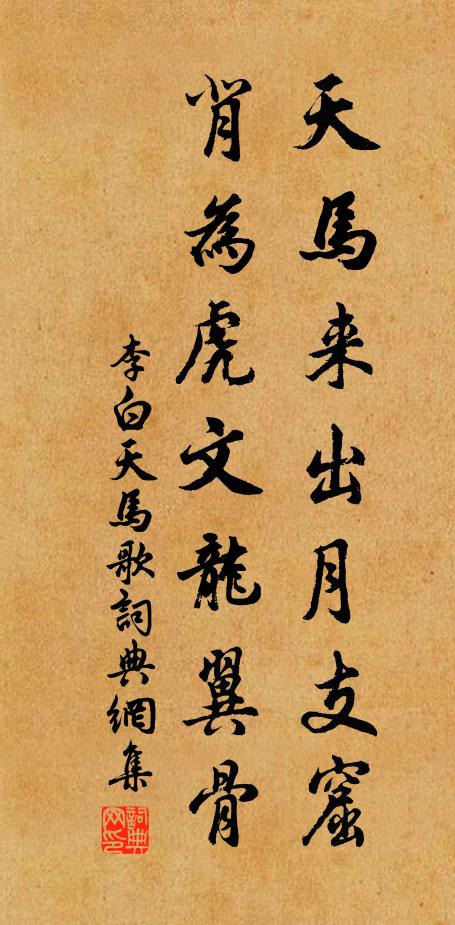 天馬来出月支窟
背為虎文龍翼骨
李白天馬歌詞典網集
詞典网印